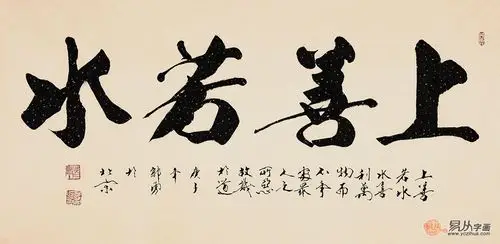 上善若水
上善
若水
水善
利萬
物而
不争
處眾
人之
所惡
故幾
於道
庚子
年
於
北京
易从字画
www.yczihua.com